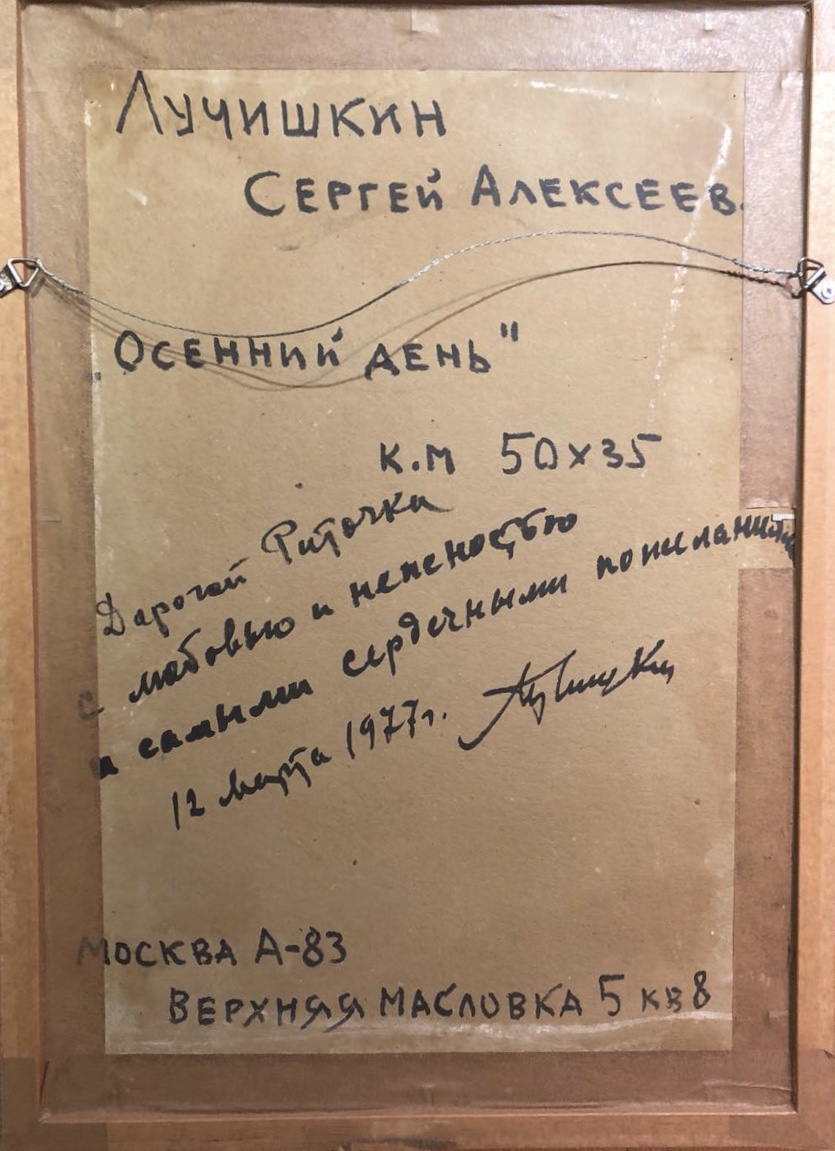 Лучишкин
Сергей Алексеев.
„Осенний день"
К.М 50х35
Дорогой Риточке
с любовью и нежностью
и самыми сердечными пожеланиями
12 марта 1977г. Лучишкин
Москва А-83
Верхняя Масловка 5 кв 8